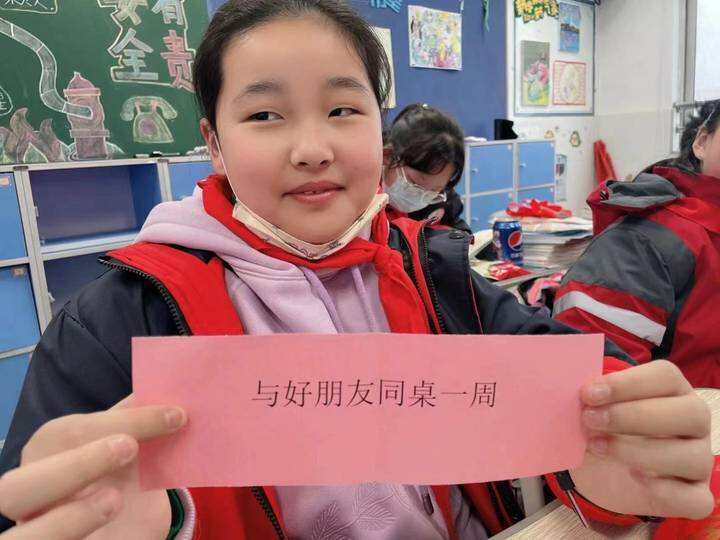 安 有
全 责
pepsi
与好朋友同桌一周